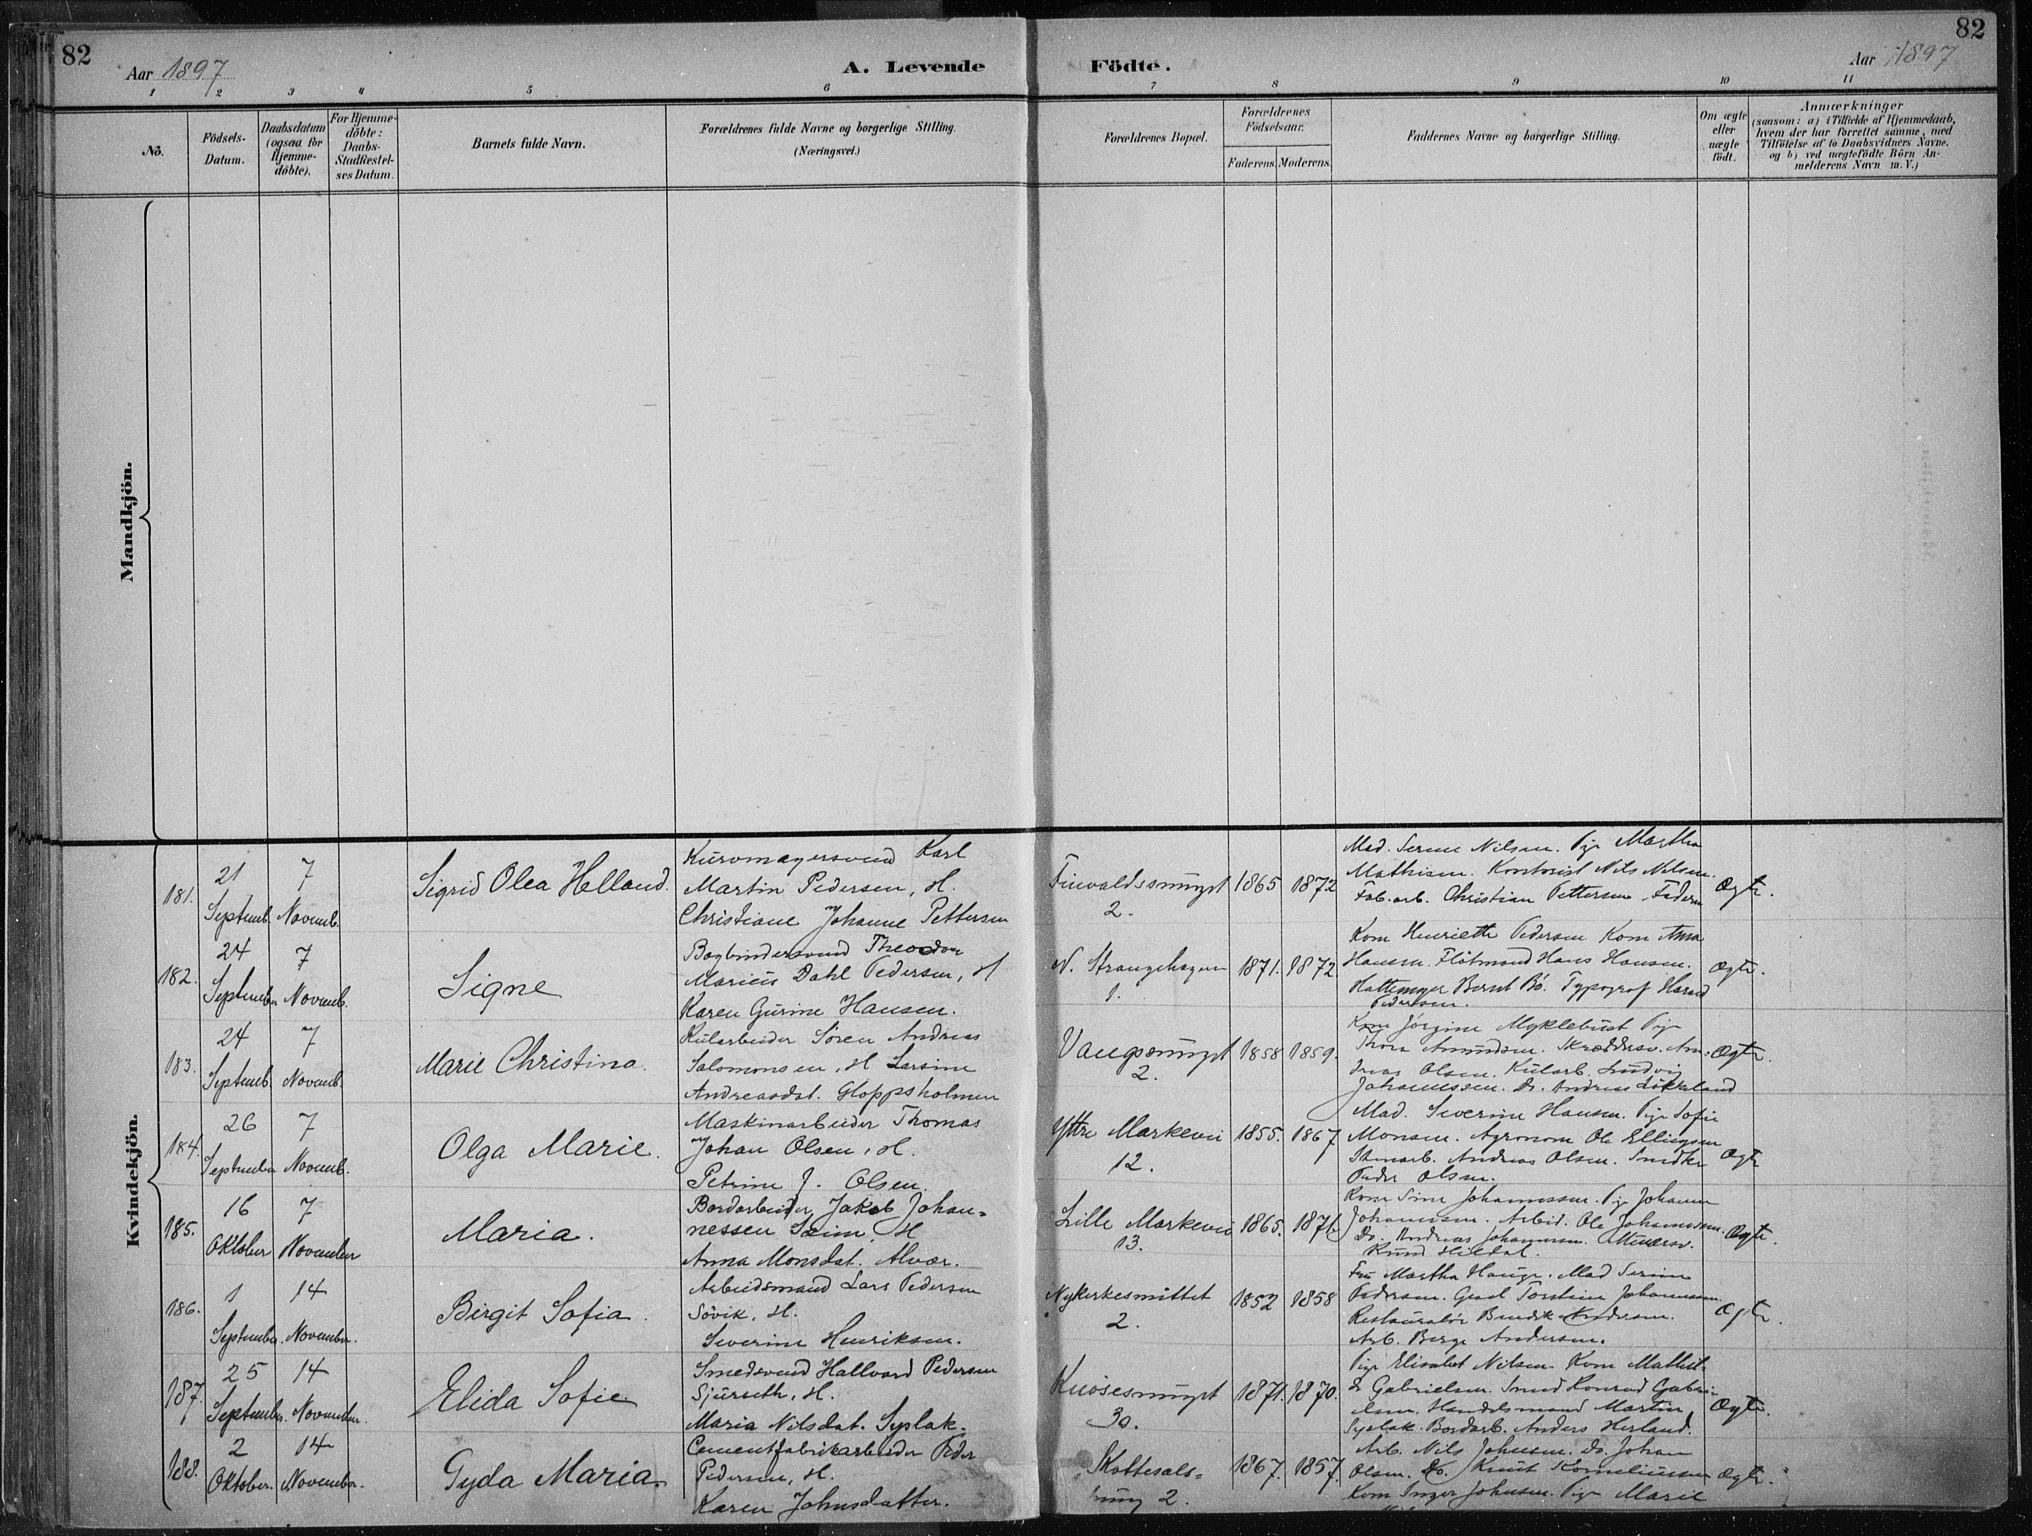 82
Aar 1897
A. Levende
Födte.
Aar 1897
82
1 2 3 4 5 6 7 8 9 10 11
No.
Födsels-
Datum.
Daabsdatum
(ogsaa for
Hjemme-
döbte).
For Hjemme-
döbte:
Daabs-
Stadfæstel-
ses Datum.
Barnets fulde Navn.
Forældrenes fulde Navne og borgerlige Stilling.
(Næringsvei.)
Forældrenes Bopæl.
Forældrenes
Födselsaar.
Faderens. Moderens.
Faddernes Navne og borgerlige Stilling.
Om ægte
eller
uægte
födt.
Anmærkninger
(saasom: a) i Tilfælde af Hjemmedaab,
hvem der har forrettet samme, med
Tilföielse af to Daabsvidners Navne,
og b) ved uægtefödte Börn An-
melderens Navn m. V.)
Mandkjön.
Kvindekjön.
181.
21
Septemb.
7
Novemb.
Sigrid Olea Helland.
Kurvmagersvend Karl
Martin Pedersen, H.
Christiane Johanne Pettersen
2.
1865 1872
Mad. Serine Nilsen. Pige Martha
Mathisen. Kontorist Nils Nilsen.
Fab.arb. Christian Pettersen Faderen
Ægte.
182.
24
September
7
Novemb.
Signe
Bogbindersvend Theodor
Marius Dahl Pedersen, H
Karen Gurine Hansen.
N. Strangehagen
1.
1871. 1872.
Kone Henriette Pedersen Kone Anna
Hansen. Flötmand Hans Hansen.
Hattemager Bernt Bö. Typograf Harald
Pedersen.
Ægte.
183.
24
Septemb.
7
Novemb.
Marie Christina.
Kularbeider Sören Andreas
Salomonsen, H Larsine
Andreasdat. Gloppsholmen
Vaugsmuget
2.
1858 1859.
Kone Jörgine Myklebust Pige
Thora Amundsen. Skræddersv. An-
dreas Olsen. Kularb. Ludvig
Johannessen. Do. Andreas Lökkeland
Ægte.
184.
26
September
7
Novemb.
Olga Marie.
Maskinarbeider Thomas
Johan Olsen, H.
Petrine J. Olsen.
Yttre Markevei
12.
1855. 1867.
Mad. Severine Hansen. Pige Sofie
Monsen. Agronom Ole Ellingsen
Stenarb. Andreas Olsen. Snedker
Peder Olsen.
Ægte
185.
16
Oktober
7
November
Maria.
Bordarbeider Jakob Johan-
nessen Seim, H
Anna Monsdat. Alvær.
Lille Markevei
13.
1865. 1871.
Kone Sine Johannessen. Pige Johanna
Johannessen. Arbid. Ole Johannessen.
Do. Andreas Johannessen.
Knud Hildal.
Ægte.
186.
1
September
14
November.
Birgit Sofia.
Arbeidsmand Lars Pedersen
Sövik, H.
Severine Henriksen.
Nykirkesmittet
2.
1852 1858
Fru Martha Hauge. Mad Serine
Pedersen. Grad Torstein Johannesen.
Restauratör Bendik Andersen.
Arb. Berge Andersen.
Ægte.
187.
25
September.
14
November.
Elida Sofie
Smedsvend Hallvard Pedersen
Sjurseth, H.
Maria Nilsdat. Syslak.
Knösesmuget
30.
1871. 1870.
Pige Elisabet Nilsen. Kone Mathil-
de Gabrielsen. Smed Konrad Gabri-
elsen. Handelsmand Martin
Syslak. Bordarb. Anders Herland.
Ægte.
188.
2
Oktober.
14
November.
Gyda Maria.
Cementfabrikarbeider Peder
Pedersen, H.
Karen Johnsdatter.
Skottesals-
smug 2.
1867. 1857.
Arb. Nils Johnsen. Do. Johan
Olsen. Do. Knut Korneliussen
Kone Inger Johnsen. Pige Marie
Ægte.